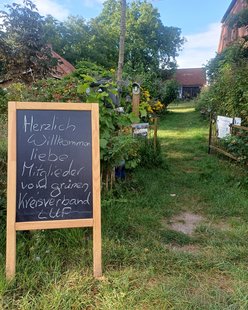 Herzlich
Willkommen
liebe
Mitglieder
vom grünen
Kreisverband
LUF